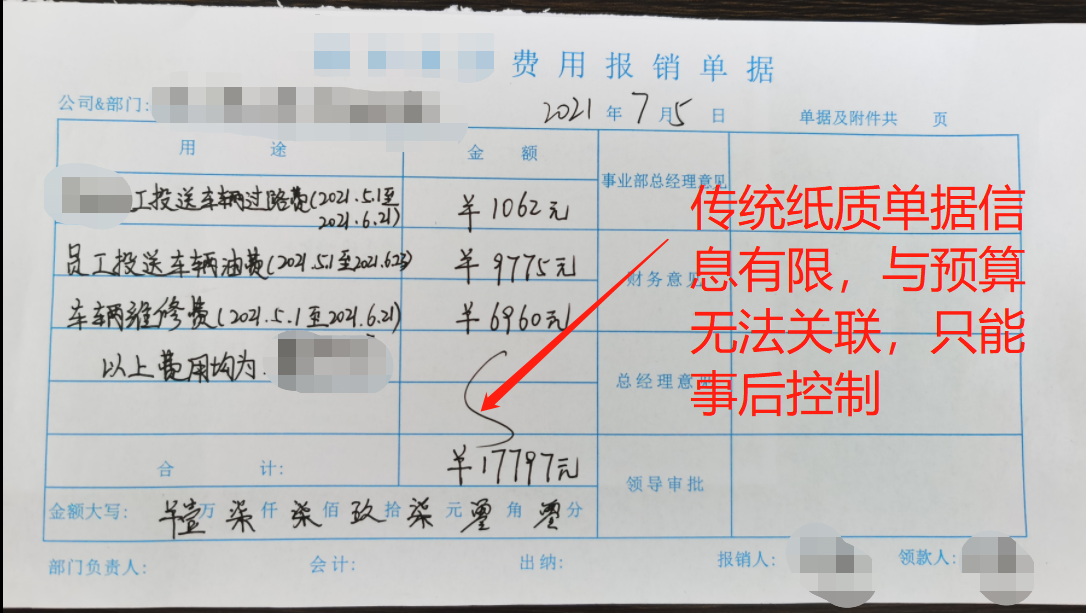 费用报销单据
公司&部门：
2021年7月5日
单据及附件共 页
用 途
金 额
事业部总经理意见
工投送车辆过路费(2021.5.1至
2021.6.21)
¥1062元
员工投送车辆油费(2021.5.1至2021.6.23)
¥9775元
财务意见
车辆维修费(2021.5.1至2021.6.21)
¥6960元
以上费用均为:
总经理意见
传统纸质单据信
息有限，与预算
无法关联，只能
事后控制
合 计：
¥17797元
领导审批
金额大写：¥壹万柒仟柒佰玖拾柒元零角零分
部门负责人：
会计：
出纳：
报销人：
领款人：